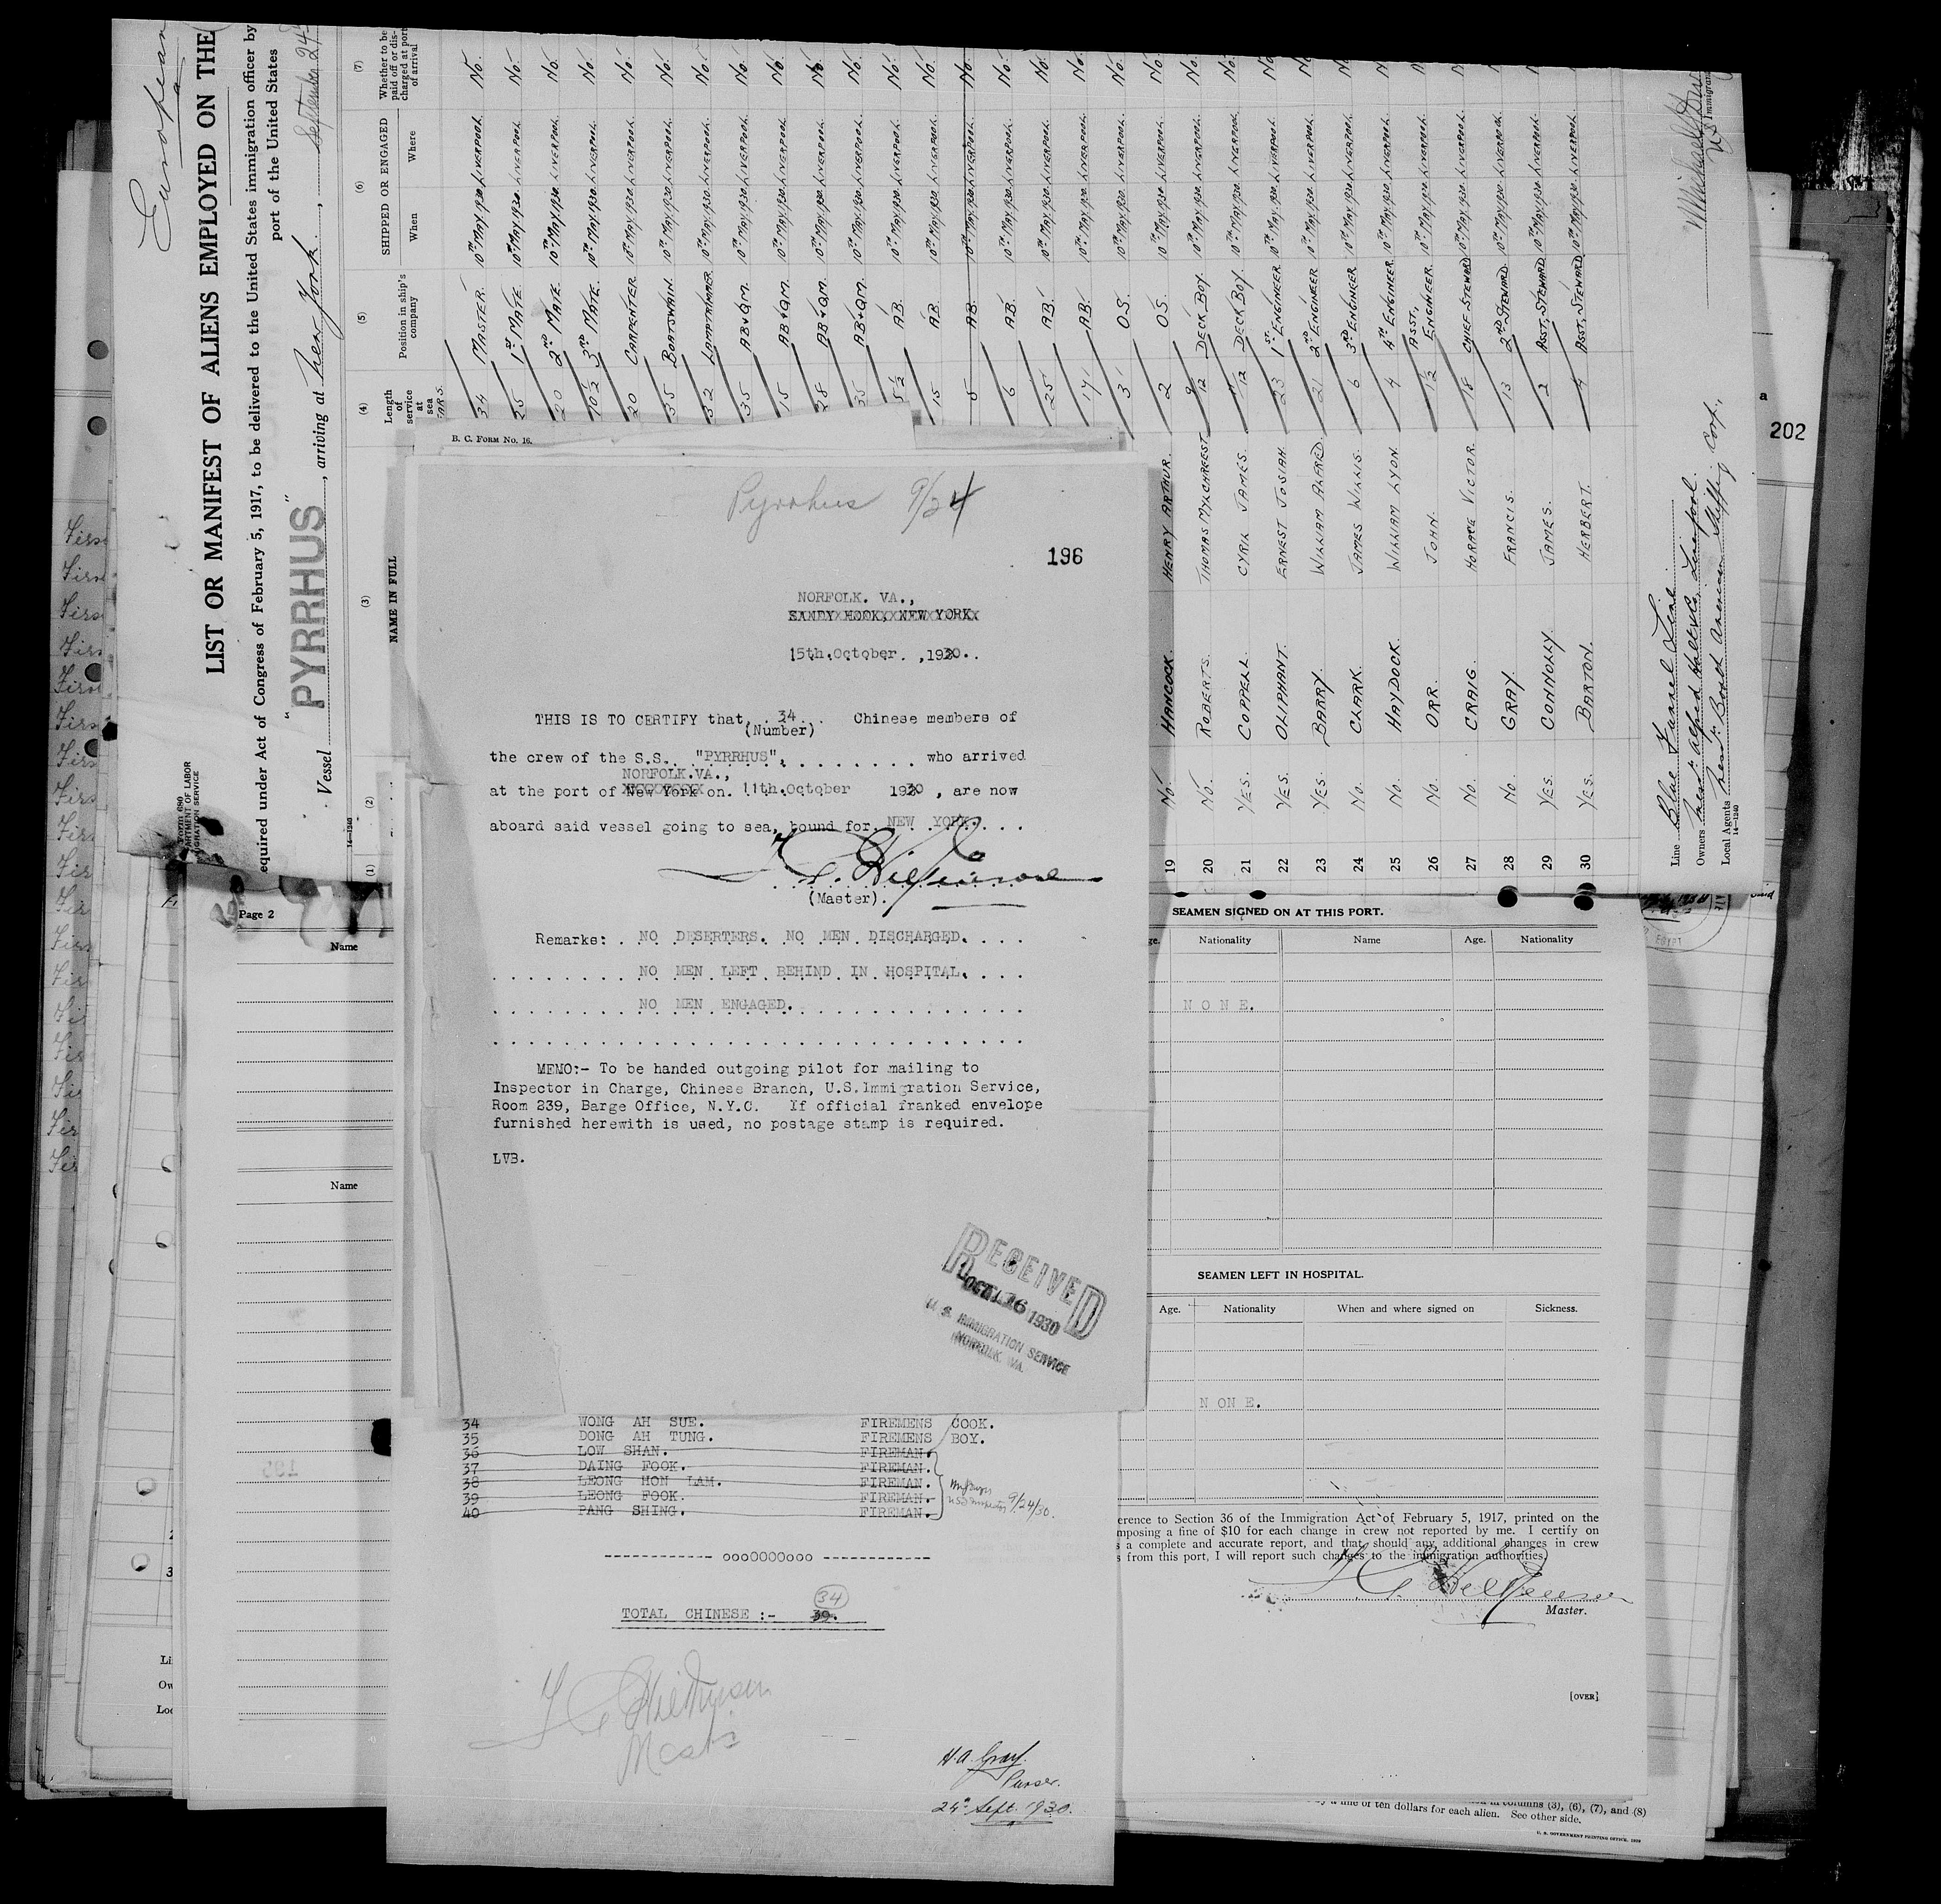 Pyrrhus 9/24
196
NORFOLK. VA.,
SANDY HOOK, NEW YORK
15th.October. ,1930..
THIS IS TO CERTIFY that. . 34. . Chinese members of
(Number)
the crew of the S.S. "PYRRHUS", . . . . . . . . who arrived
NORFOLK.VA.,
at the port of New York on. 11th.October 1930 , are now
aboard said vessel going to sea, bound for NEW YORK.
(Master).
Remarks: . NO DESERTERS. NO MEN DISCHARGED. . . .
NO MEN LEFT BEHIND IN HOSPITAL. . . .
NO MEN ENGAGED.
MEMO:- To be handed outgoing pilot for mailing to
Inspector in Charge, Chinese Branch, U.S.Immigration Service,
Room 239, Barge Office, N.Y.C. If official franked envelope
furnished herewith is used, no postage stamp is required.
LVB.
RECEIVED
OCT 16 1930
U. S. IMMIGRATION SERVICE
NORFOLK, VA.
B. C. FORM NO. 16.
34 WONG AH SUE. FIREMENS COOK.
35 DONG AH TUNG. FIREMENS BOY.
36 LOW SHAN. FIREMAN.
37 DAING FOOK. FIREMAN.
38 LEONG MON LAM. FIREMAN.
39 LEONG FOOK. FIREMAN.
40 PANG SHING. FIREMAN.
9/24/30.
----------- ooo0000ooo -----------
34
TOTAL CHINESE :- 39.
H.A. Gray.
Purser.
24th Sept. 1930.
European
LIST OR MANIFEST OF ALIENS EMPLOYED ON THE
equired under Act of Congress of February 5, 1917, to be delivered to the United States immigration officer by
port of the United States
Vessel "PYRRHUS", arriving at New York, September 24
(1) (2) (3) (4) (5) (6) (7)
NAME IN FULL
Length of service at sea
Position in ship's company
SHIPPED OR ENGAGED
When Where
Whether to be paid off or discharged at port of arrival
34 MASTER. 10TH MAY 1930 LIVERPOOL No.
25 1ST MATE. 10TH MAY 1930. LIVERPOOL No.
20 2ND MATE. 10TH MAY 1930. LIVERPOOL No.
10½ 3RD MATE. 10TH MAY 1930. LIVERPOOL No.
20 CARPENTER. 10TH MAY 1930. LIVERPOOL No.
35 BOATSWAIN. 10TH MAY 1930. LIVERPOOL No.
32 LAMPTRIMMER. 10TH MAY 1930. LIVERPOOL No.
35 AB+QM. 10TH MAY 1930. LIVERPOOL No.
15 AB+QM. 10TH MAY 1930. LIVERPOOL No.
28 AB+QM. 10TH MAY 1930. LIVERPOOL No.
35 AB+QM. 10TH MAY 1930. LIVERPOOL No.
5½ AB. 10TH MAY 1930. LIVERPOOL No.
15 AB. 10TH MAY 1930. LIVERPOOL No.
5 AB. 10TH MAY 1930. LIVERPOOL No.
6 AB. 10TH MAY 1930. LIVERPOOL No.
25 AB. 10TH MAY 1930. LIVERPOOL No.
17 AB. 10TH MAY 1930. LIVERPOOL No.
3 O.S. 10TH MAY 1930. LIVERPOOL No.
19 No. HANCOCK. HENRY ARTHUR. 2 O.S. 10TH MAY 1930. LIVERPOOL No.
20 No. ROBERTS. THOMAS MYLCHREEST 9/12 DECK BOY. 10TH MAY 1930. LIVERPOOL No.
21 YES. COPPELL. CYRIL JAMES. DECK BOY. 10TH MAY 1930. LIVERPOOL No.
22 YES. OLIPHANT. ERNEST JOSIAH. 23 1ST ENGINEER 10TH MAY 1930. LIVERPOOL No.
23 YES. BARRY. WILLIAM ALFRED. 21 2ND ENGINEER 10TH MAY 1930. LIVERPOOL
24 No. CLARK. JAMES WILLIS. 6 3RD ENGINEER 10TH MAY 1930. LIVERPOOL
25 No. HAYDOCK. WILLIAM LYON. 4 4TH ENGINEER 10TH MAY 1930. LIVERPOOL
26 No. ORR. JOHN. 1½ ASST. ENGINEER. 10TH MAY 1930. LIVERPOOL
27 No. CRAIG. HORACE VICTOR. 18 CHIEF STEWARD 10TH MAY 1930. LIVERPOOL
28 No. GRAY. FRANCIS. 13 2ND STEWARD. 10TH MAY 1930. LIVERPOOL
29 YES. CONNOLLY. JAMES. 2 ASST. STEWARD 10TH MAY 1930. LIVERPOOL
30 YES. BARTON. HERBERT. 4 ASST. STEWARD 10TH MAY 1930. LIVERPOOL
Line Blue Funnel Line
Owners Messrs Alfred Holt & Co. Liverpool.
Local Agents Messrs Booth American Shipping Corp.,
14—1240
202
Page 2
Name
Name
SEAMEN SIGNED ON AT THIS PORT.
Nationality Name Age. Nationality
NONE.
SEAMEN LEFT IN HOSPITAL.
Age. Nationality When and where signed on Sickness.
NONE.
erence to Section 36 of the Immigration Act of February 5, 1917, printed on the
mposing a fine of $10 for each change in crew not reported by me. I certify on
s a complete and accurate report, and that should any additional changes in crew
s from this port, I will report such changes to the immigration authorities.
Master.
[OVER]
columns (3), (6), (7), and (8)
ten dollars for each alien. See other side.
U. S. GOVERNMENT PRINTING OFFICE